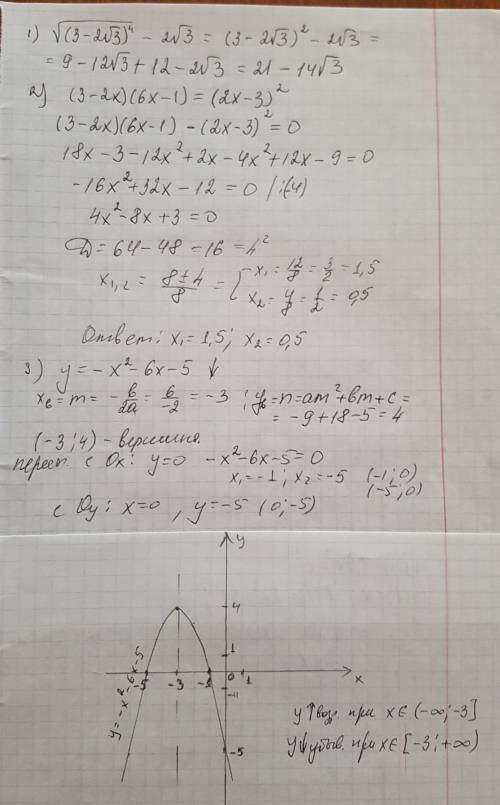 1) √(3-2√3)⁴ - 2√3 = (3-2√3)² - 2√3 =
= 9-12√3+12-2√3 = 21-14√3
2) (3-2x)(6x-1) = (2x-3)²
(3-2x)(6x-1) - (2x-3)² = 0
18x-3-12x²+2x-4x²+12x-9=0
-16x²+32x-12=0 /:(-4)
4x²-8x+3=0
D = 64-48=16=4²
x₁,₂ = (8±4)/8 = { x₁=12/8=3/2=1,5
x₂=4/8=1/2=0,5
Ответ: x₁=1,5; x₂=0,5
3) y=-x²-6x-5 ↓
xв=m=-b/2a=6/-2=-3; yв=n=am²+bm+c=
= -9+18-5=4
(-3;4) - вершина.
перес. с Ox: y=0 -x²-6x-5=0
x₁=-1; x₂=-5 (-1;0)
(-5;0)
с Oy: x=0, y=-5 (0;-5)
y
4
1
-5 -3 -1 0 1 x
-1
-5
y=-x²-6x-5
y↑возр. при x∈(-∞;-3]
y↓убыв. при x∈[-3;+∞)